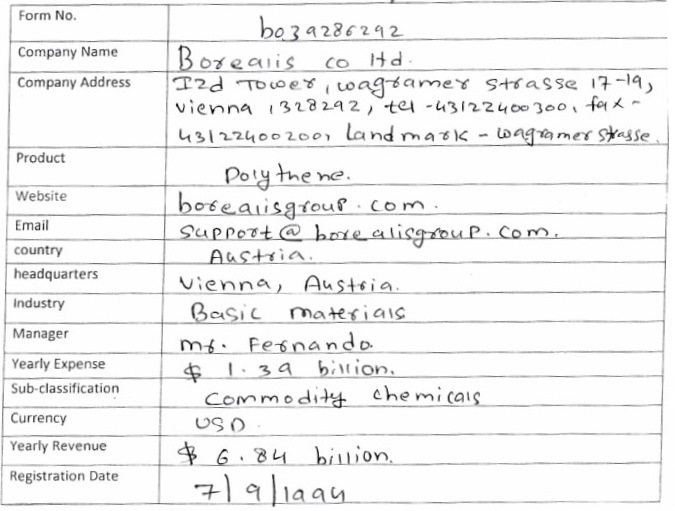 Form No. bo39286292
Company Name Borealis co ltd.
Company Address IZd Tower, wagramer strasse 17-19,
vienna, 1328292, tel -43122400300, fax -
43122400200, landmark - wagramer strasse.
Product Polythene.
Website borealisgroup.com.
Email support@borealisgroup.com.
country Austria.
headquarters vienna, Austria.
Industry Basic materials
Manager mr. Fernando.
Yearly Expense $ 1.39 billion.
Sub-classification commodity chemicals
Currency USD.
Yearly Revenue $ 6.84 billion.
Registration Date 7/9/1994